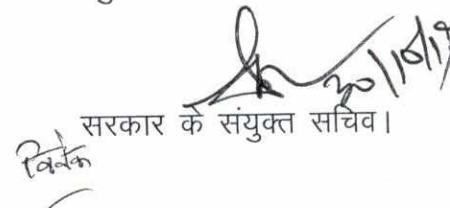 30/10/19
सरकार के संयुक्त सचिव।
विवेक